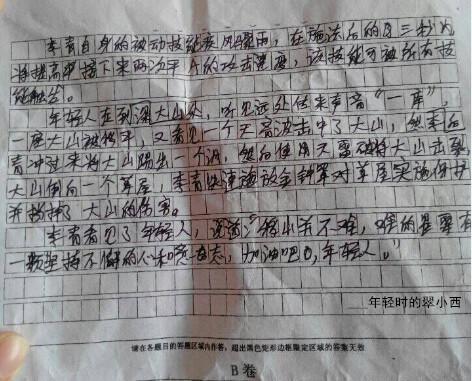 李青自身的被动技能疾风骤雨，在施法后的三秒内
将提高接下来两次平A的攻击速度，该技能可被所有技
能触发。
年轻人在到深大山处，听见远处传来声音“一库”，
一座大山被传平，又看见一个天音波击中了大山，然来后
青冲过来将大山踢出一个洞，然后使用天雷破将大山击
大山倒向一个草屋，李青快速施放金钟罩对草屋实施保护
并挡掉了大山的伤害。
李青看见了年轻人，说道：“移山并不难，难的是要有
一颗坚持不懈的心和心态，加油吧，年轻人。”
年轻时的翠小西
请在各题目的答题区域内作答，超出黑色矩形边框限定区域的答案无效
B卷